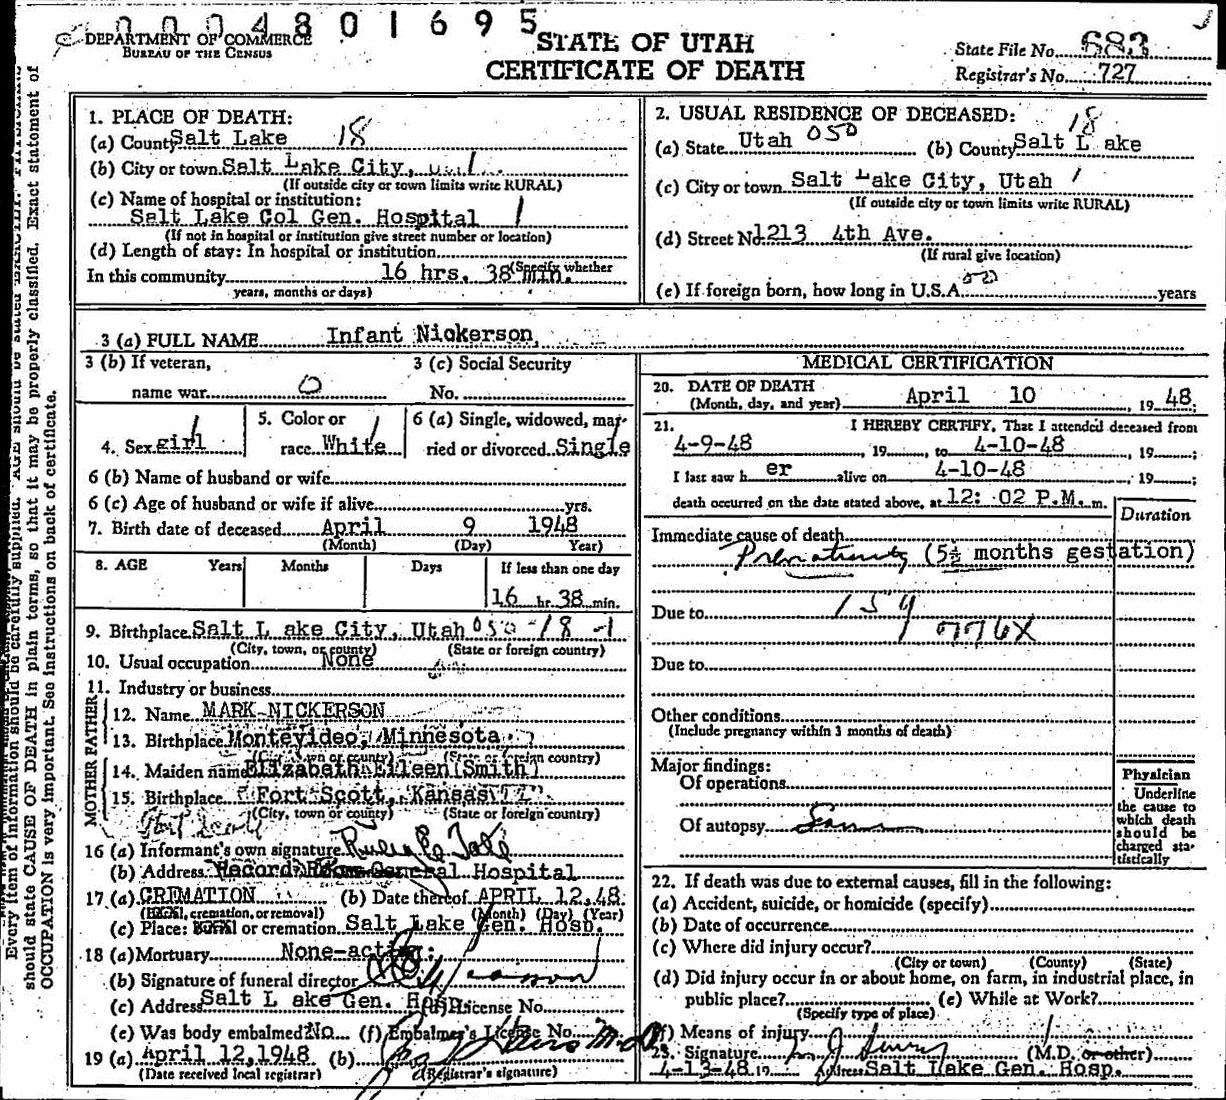 0004801695
DEPARTMENT OF COMMERCE
BUREAU OF THE CENSUS
STATE OF UTAH
CERTIFICATE OF DEATH
State File No. 683
Registrar's No. 727
Every item of information should be carefully supplied. AGE should be stated EXACTLY.
should state CAUSE OF DEATH in plain terms, so that it may be properly classified. Exact statement of
OCCUPATION is very important. See instructions on back of certificate.
1. PLACE OF DEATH:
(a) County Salt Lake 18
(b) City or town Salt Lake City,
(If outside city or town limits write RURAL)
(c) Name of hospital or institution:
Salt Lake Col Gen. Hospital 1
(If not in hospital or institution give street number or location)
(d) Length of stay: In hospital or institution
In this community 16 hrs. 38 min. (Specify whether
years, months or days)
2. USUAL RESIDENCE OF DECEASED:
(a) State Utah 050 (b) County Salt L ake 18
(c) City or town Salt Lake City, Utah 1
(If outside city or town limits write RURAL)
(d) Street No. 1213 4th Ave.
(If rural give location)
(e) If foreign born, how long in U.S.A. years
3 (a) FULL NAME Infant Nickerson
3 (b) If veteran,
name war 0
3 (c) Social Security
No.
4. Sex girl
5. Color or
race White
6 (a) Single, widowed, mar-
ried or divorced Single
6 (b) Name of husband or wife
6 (c) Age of husband or wife if alive yrs.
7. Birth date of deceased April 9 1948
(Month) (Day) Year)
8. AGE Years Months Days If less than one day
16 hr. 38 min.
9. Birthplace Salt L ake City, Utah 050-18-1
(City, town, or county) (State or foreign country)
10. Usual occupation None
11. Industry or business
FATHER
12. Name MARK NICKERSON
13. Birthplace Montevideo, Minnesota
(City, town or county) (State or foreign country)
MOTHER
14. Maiden name Elizabeth Eileen (Smith)
15. Birthplace Fort Scott, Kansas
(City, town or county) (State or foreign country)
Fort Scott
16 (a) Informant's own signature
(b) Address Record Room General Hospital
17 (a) CREMATION (b) Date thereof APRIL 12, 48
(Burial, cremation, or removal) (Month) (Day) (Year)
(c) Place: Burial or cremation Salt Lake Gen. Hosp.
18 (a) Mortuary None-acting:
(b) Signature of funeral director
(c) Address Salt L ake Gen. Hosp. (d) License No.
(e) Was body embalmed? No (f) Embalmer's License No.
19 (a) April 12, 1948 (b) M.D.
(Date received local registrar) (Registrar's signature)
MEDICAL CERTIFICATION
20. DATE OF DEATH
(Month, day, and year) April 10, 19 48
21. I HEREBY CERTIFY, That I attended deceased from
4-9-48, 19 to 4-10-48, 19 ;
I last saw h er alive on 4-10-48, 19 ;
death occurred on the date stated above, at 12: 02 P.M. m.
Duration
Immediate cause of death
Prematurity (5½ months gestation)
Due to 159
776X
Due to
Other conditions
(Include pregnancy within 3 months of death)
Major findings:
Of operations
Of autopsy Same
Physician
Underline
the cause to
which death
should be
charged sta-
tistically
22. If death was due to external causes, fill in the following:
(a) Accident, suicide, or homicide (specify)
(b) Date of occurrence
(c) Where did injury occur?
(City or town) (County) (State)
(d) Did injury occur in or about home, on farm, in industrial place, in
public place? (e) While at Work?
(Specify type of place)
(f) Means of injury
23. Signature (M.D. or other)
4-13-48 19 Address Salt Lake Gen. Hosp.